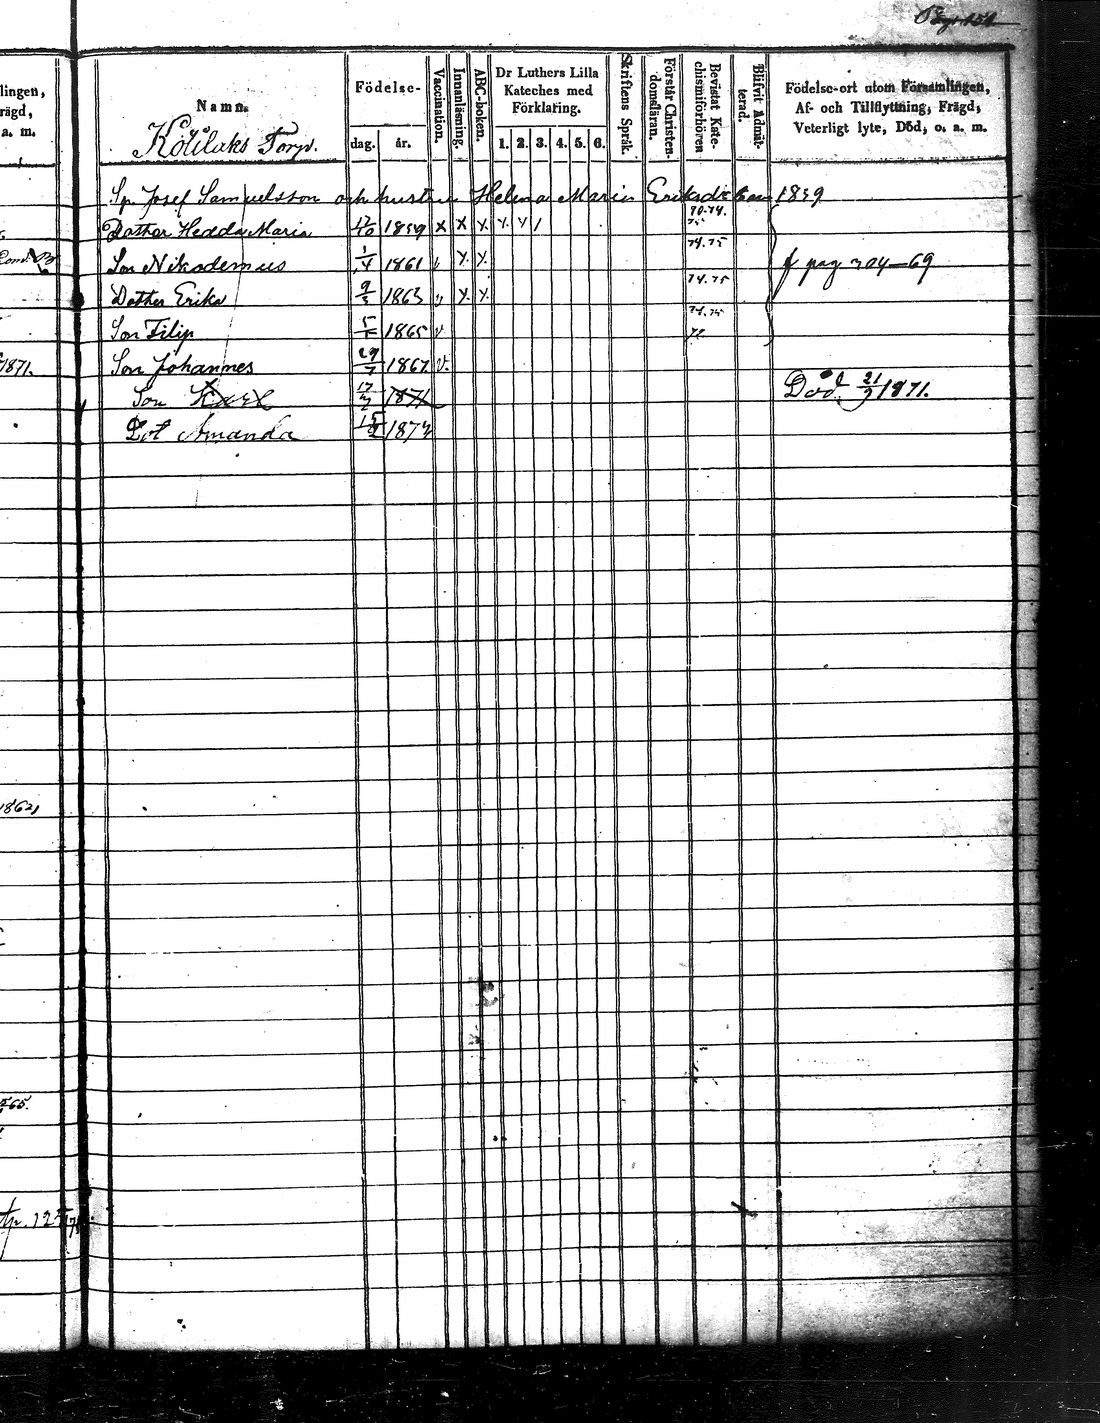 Pag. 151
lingen,
rägd,
a. m.
Namn.
Torp.
Födelse-
dag.
år.
Vaccination.
Innanläsning.
ABC-boken.
Dr Luthers Lilla
Kateches med
Förklaring.
1. 2. 3. 4. 5. 6.
Skriftens Språk.
Förstår Christen-
domsläran.
Bevistat Kate-
chismiförhören
Blifvit Admit-
terad.
Födelse-ort utom Församlingen,
Af- och Tillflyttning, Frägd,
Veterligt lyte, Död, o. a. m.
Sp. Josef Samuelsson och hustru Helena Maria 1859
Dotter Hedda Maria 1859 x x x
Son Nikodemus 1/4 1861 v x x 74.75 f pag 304—69
Dotter Erika 9/3 1863 v x x 74.75
Son Filip 1865 v 74.75
Son Johannes 29/7 1867 v.
Son Karl 17/2 1871 Död 21/2 1871.
Dot Amanda 1874
1871.
1862,
65.